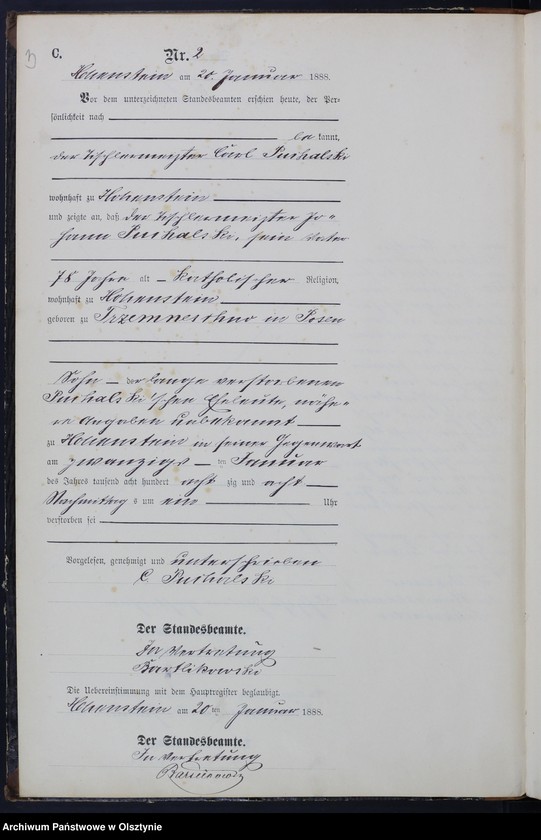 C.
Nr. 2
Hohenstein am 20. Januar 1888.
Vor dem unterzeichneten Standesbeamten erschien heute, der Per-
sönlichkeit nach
bekannt,
der Tischlermeister Carl Puchalski
wohnhaft zu Hohenstein
und zeigte an, daß der Tischlermeister Jo-
hann Puchalski, sein Vater
78 Jahre alt – katholischer Religion,
wohnhaft zu Hohenstein
geboren zu Trzemneschno in Posen
Sohn – der lange verstorbenen
Puchalski'schen Eheleute, nähe-
re Angaben unbekannt
zu Hohenstein in seiner Gegenwart
am zwanzigs – ten Januar
des Jahres tausend acht hundert acht zig und acht
Nachmittags um ein Uhr
verstorben sei
Vorgelesen, genehmigt und unterschrieben
C. Puchalski
Der Standesbeamte.
In Vertretung
Bartlikowski
Die Uebereinstimmung mit dem Hauptregister beglaubigt.
Hohenstein am 20 ten Januar 1888.
Der Standesbeamte.
In Vertretung
Archiwum Państwowe w Olsztynie